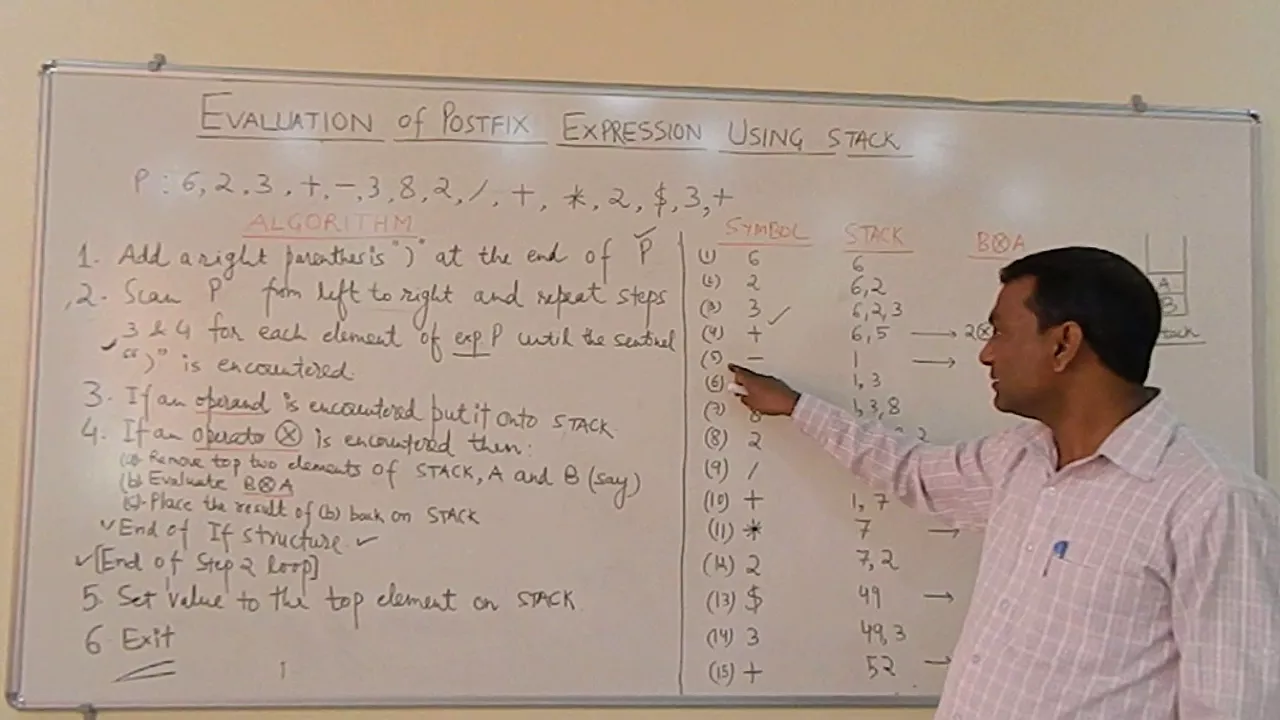 EVALUATION of POSTFIX EXPRESSION USING STACK
P : 6, 2, 3, +, -, 3, 8, 2, /, +, *, 2, $, 3, +
ALGORITHM
1. Add a right parenthesis ")" at the end of P
2. Scan P from left to right and repeat steps
3 & 4 for each element of exp P until the sentinel
")" is encountered.
3. If an operand is encountered put it onto STACK.
4. If an operator ⊗ is encountered then:
(a) Remove top two elements of STACK, A and B (say)
(b) Evaluate B⊗A
(c) Place the result of (b) back on STACK
End of If structure
[End of Step 2 loop]
5. Set value to the top element on STACK
6 Exit
SYMBOL STACK B⊗A
(1) 6 6
(2) 2 6, 2
(3) 3 ✓ 6, 2, 3
(4) + 6, 5 → 2⊗
(5) - 1 →
(6) 1, 3
(7) 8 1, 3, 8
(8) 2 2
(9) /
(10) + 1, 7
(11) * 7 →
(12) 2 7, 2
(13) $ 49 →
(14) 3 49, 3
(15) + 52 →
A
B